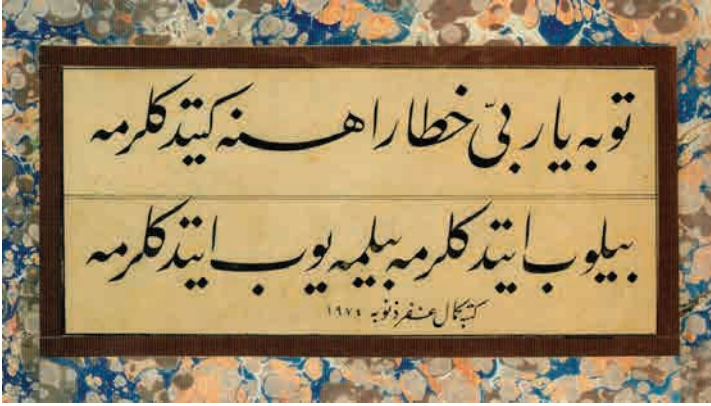 توبه یا ربی خطا راهنه کیتدکلرمه
بیلوب ایتدکلرمه بیلمه یوب ایتدکلرمه
کتبه کمال غفر ذنوبه ۱۹۷٤